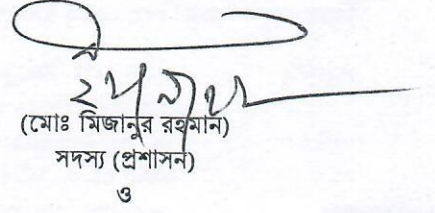 (মোঃ মিজানুর রহমান)
সদস্য (প্রশাসন)
ও